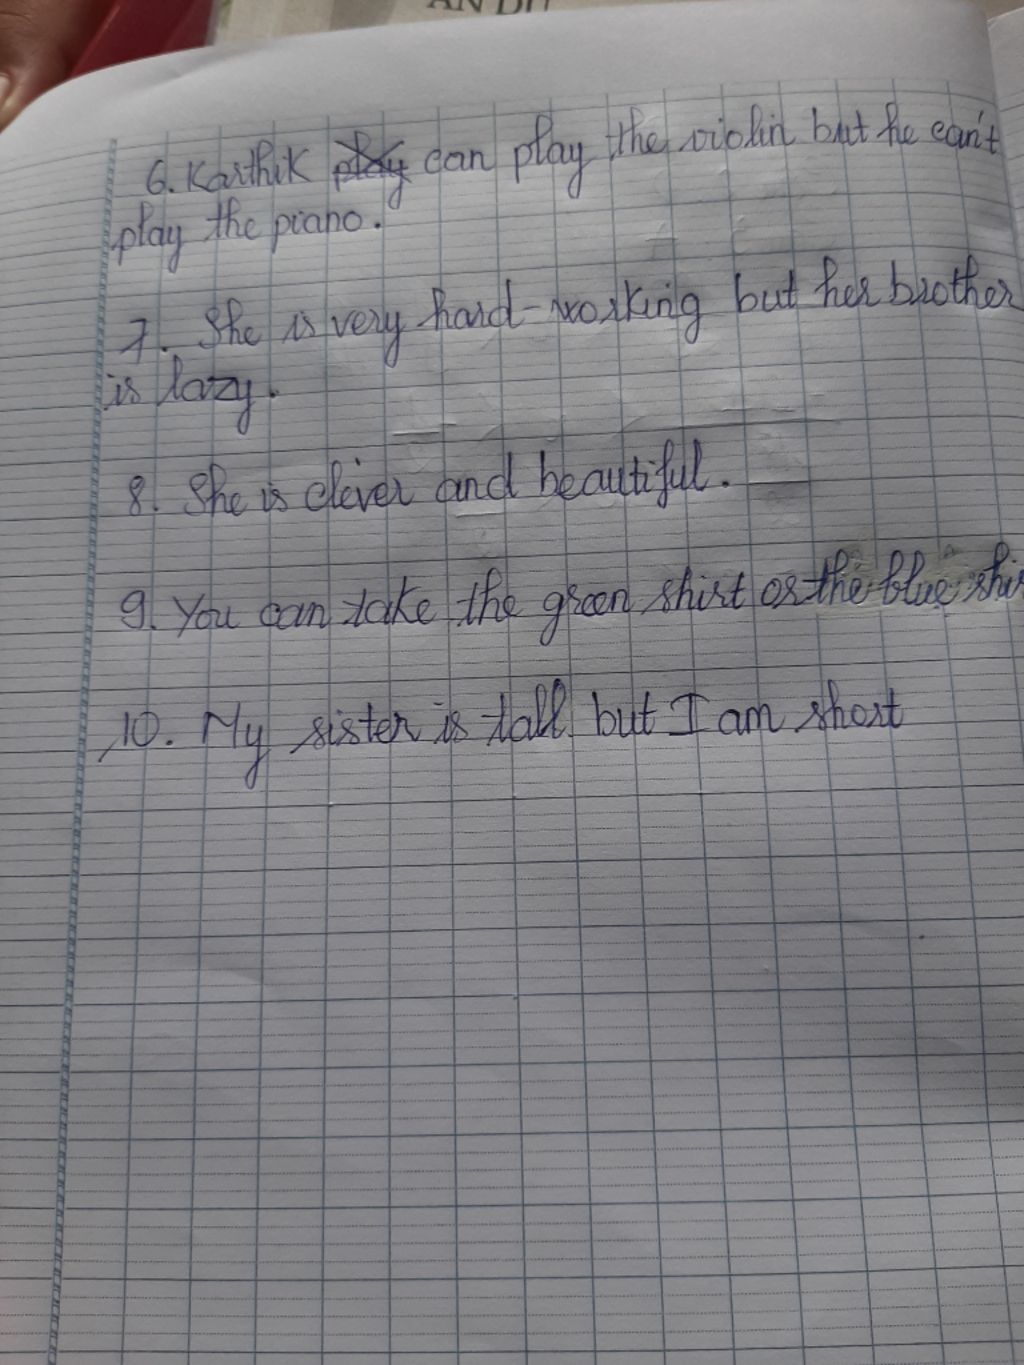 6. Karthik can play the violin but he can't
play the piano.
7. She is very hard-working but her brother
is lazy.
8. She is clever and beautiful.
9. You can take the green shirt or the blue
10. My sister is tall but I am short